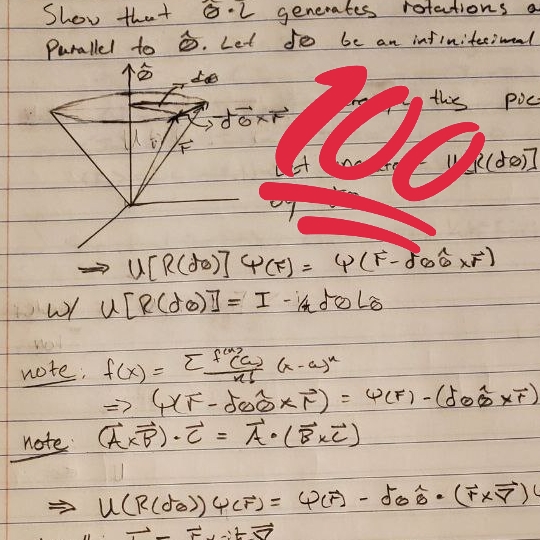 Show that θ̂·L generates rotations a
Parallel to θ̂. Let dθ be an infinitesimal
θ̂
dθ
dθ⃗×r⃗
r⃗
this pic
100
Let U[R(dθ)]
by
⇒ U[R(dθ)] Ψ(r⃗) = Ψ(r⃗-dθθ̂×r⃗)
w/ U[R(dθ)] = I - i/ħ dθ Lθ̂
note: f(x) = Σ f⁽ⁿ⁾(a)/n! (x-a)ⁿ
⇒ Ψ(r⃗ - dθθ̂×r⃗) = Ψ(r⃗) - (dθθ̂×r⃗)
note: (A⃗×B⃗)·C⃗ = A⃗·(B⃗×C⃗)
⇒ U(R(dθ))Ψ(r⃗) = Ψ(r⃗) - dθθ̂·(r⃗×∇⃗)